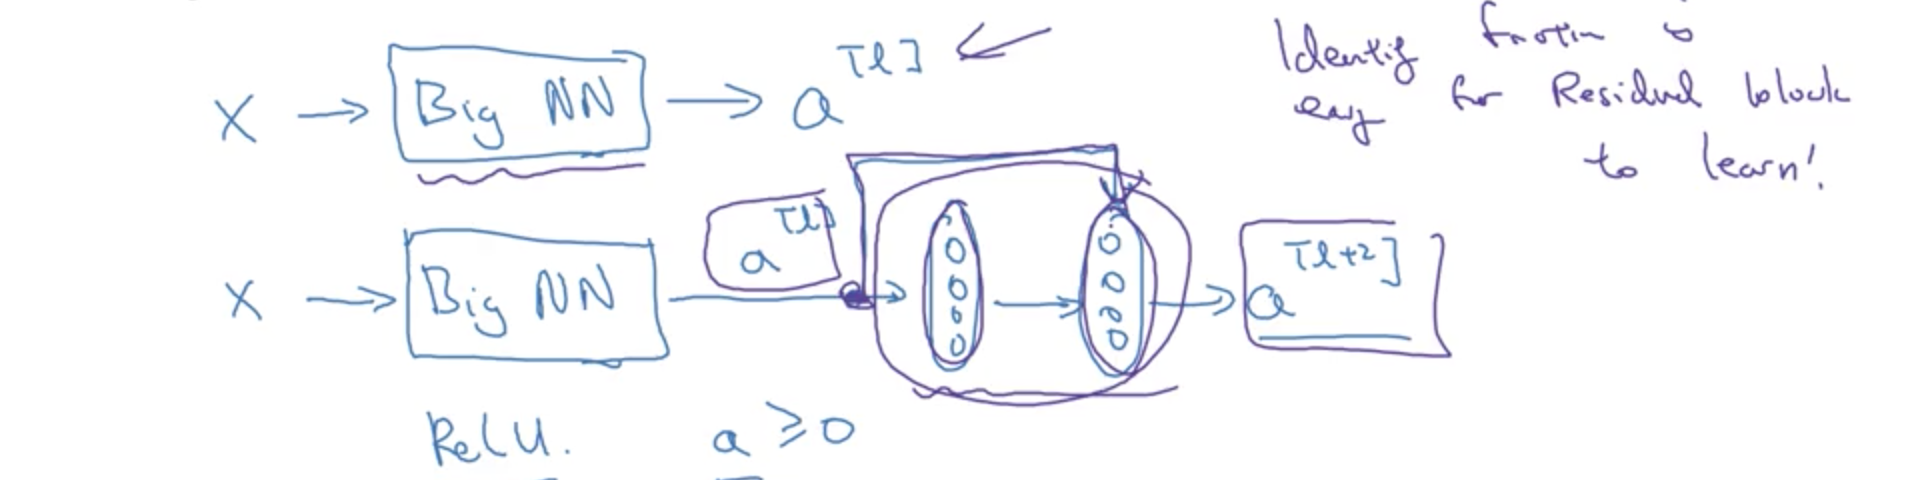 X → Big NN → a[l]
Identity function is
easy for Residual block
to learn!
X → Big NN → a[l] → → a[l+2]
ReLU. a ≥ 0